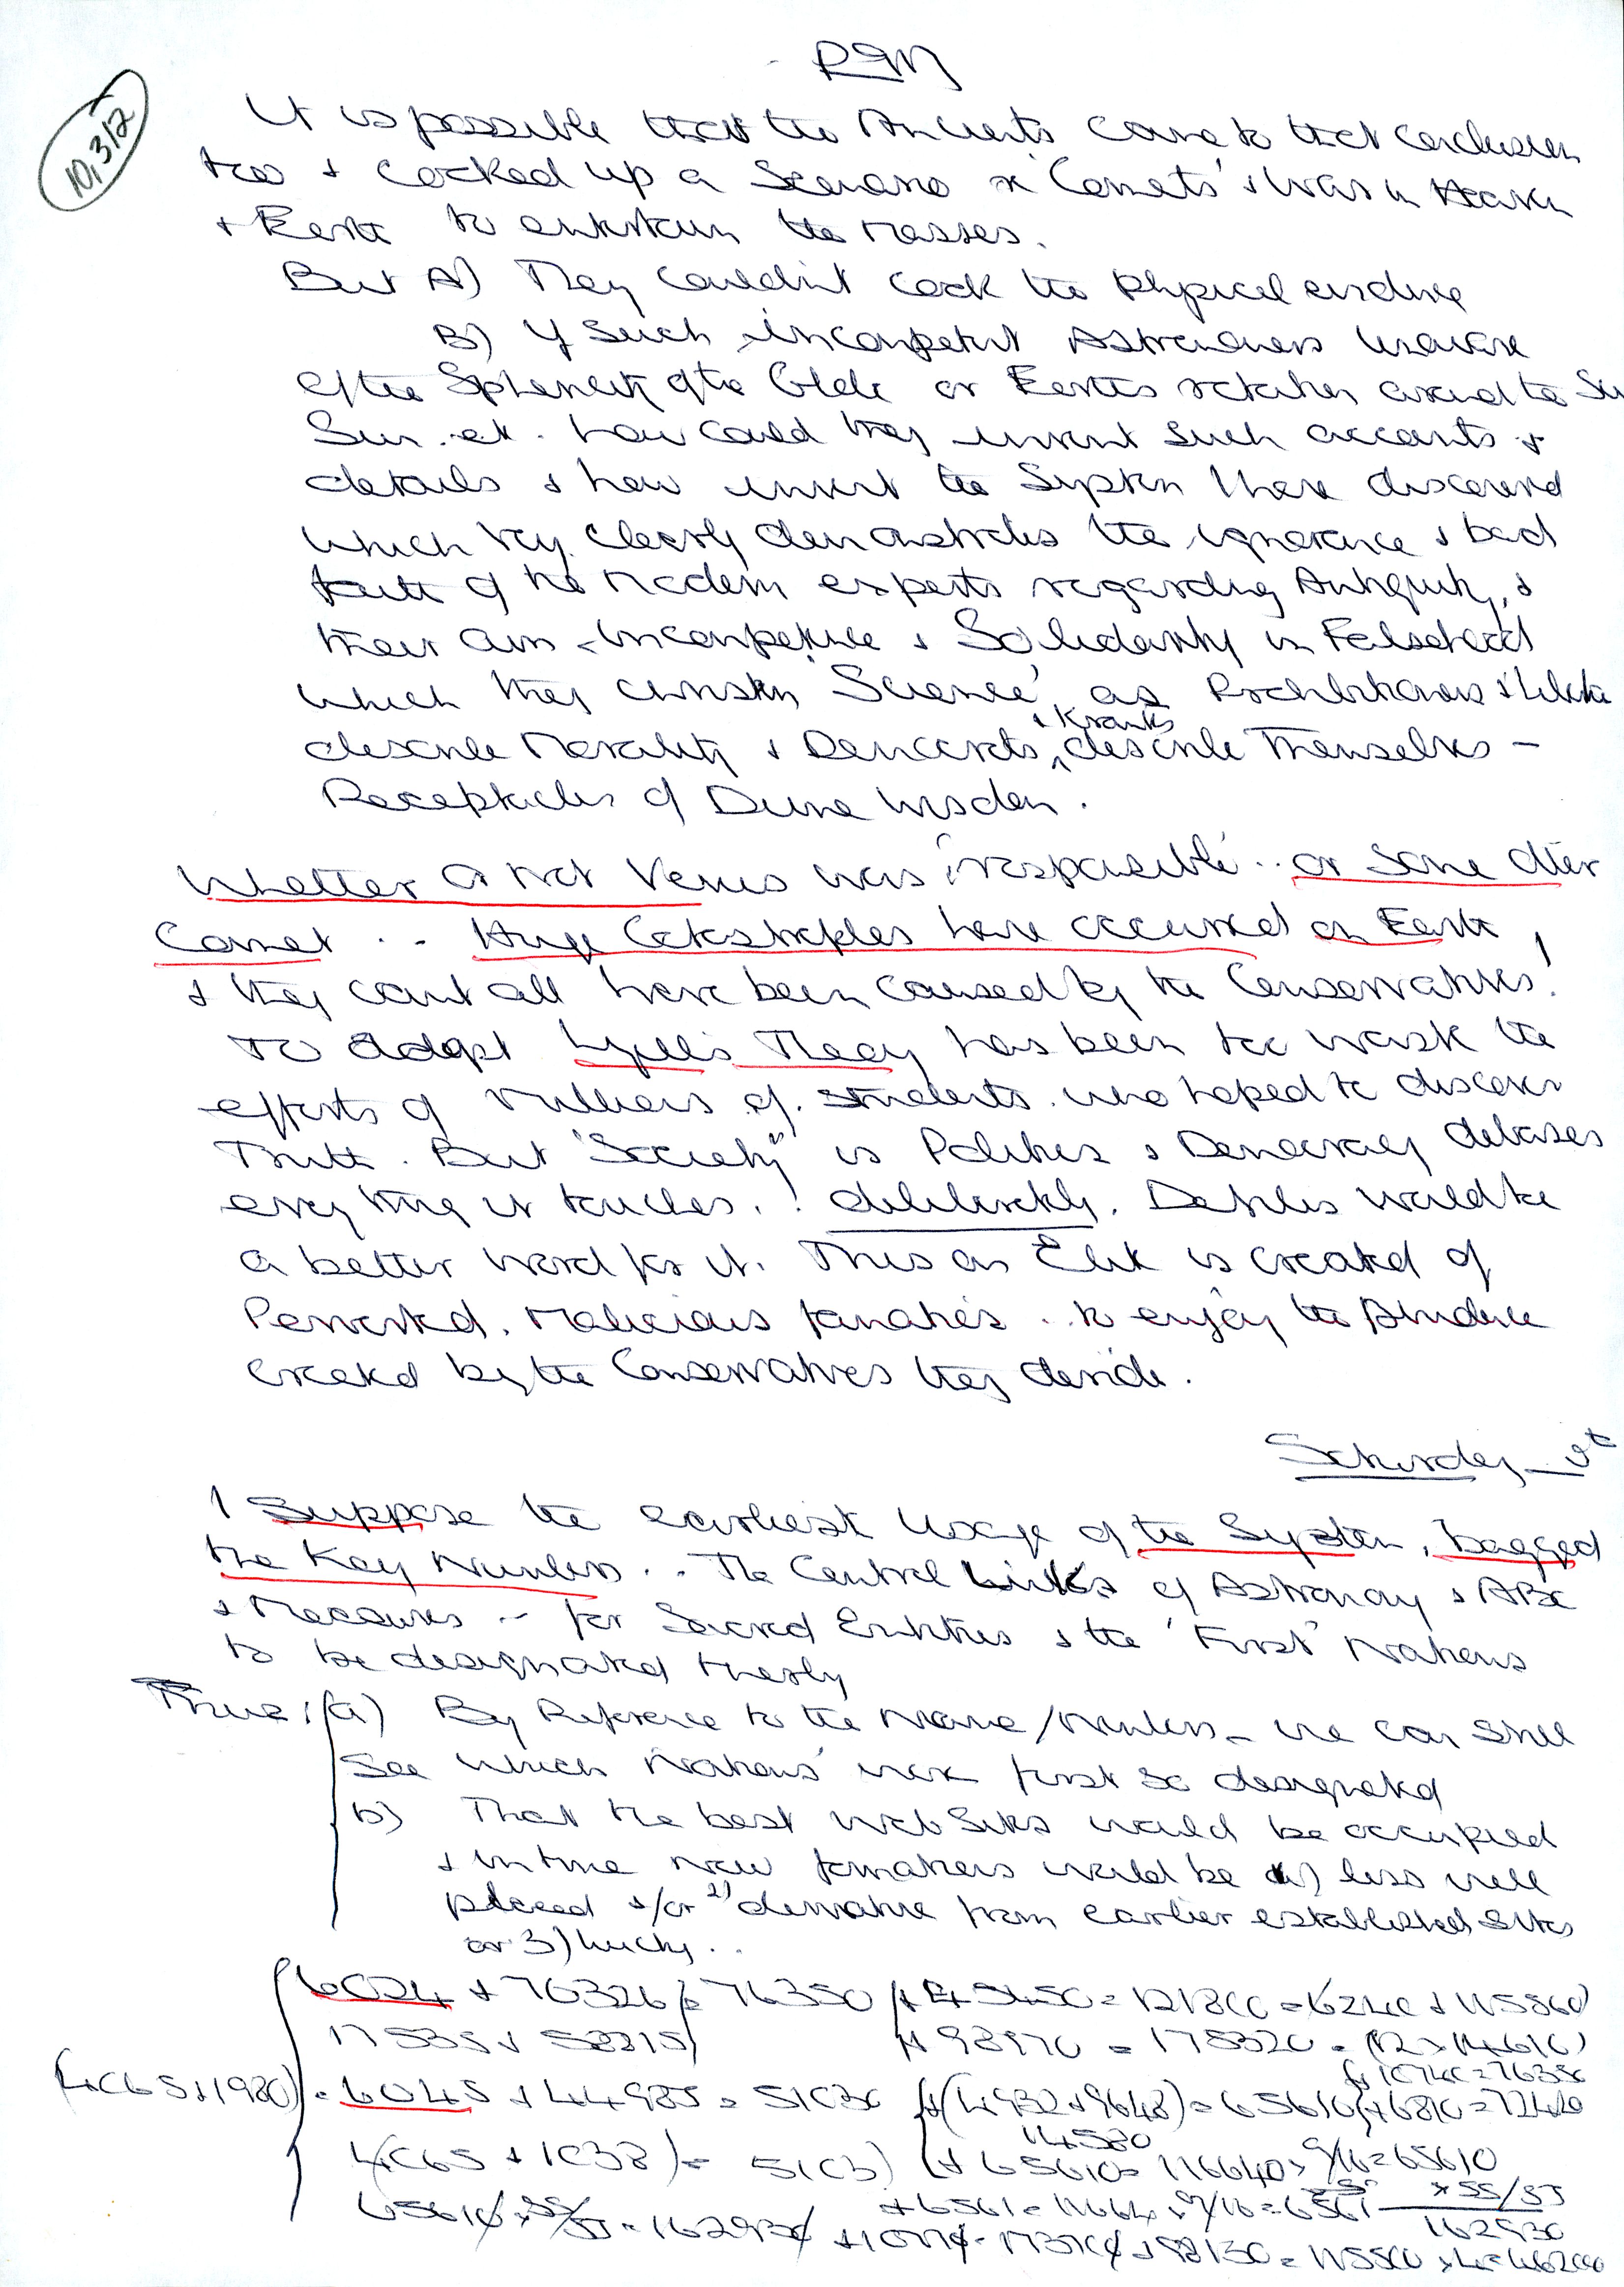 10,312
It is possible that the Ancients came to that conclusion
too & cocked up a Scenario of 'Comets' & Wars in Heaven
& Earth to entertain the Masses.
But A) They couldn't cook the physical evidence
B) If such incompetent Astronomers unaware
of the Sphericity of the Globe or Earth's rotation around the Su
Sun. etc. how could they invent such accounts &
details & how invent the System I have discovered
which very clearly demonstrates the ignorance & bad
faith of the Modern experts regarding Antiquity, &
their own incompetence & Solidarity in Falsehood
which they christen 'Science' as Prohibitionists &
describe Morality & Democrats, & Kranks describe Themselves -
Receptacles of Divine Wisdom.
Whether or not Venus was 'responsible' .. or Some other
Comet .. Huge Catastrophes have occurred on Earth
& they can't all have been caused by the Conservatives!
To adopt Lyell's Theory has been to waste the
efforts of Millions of Students who hoped to discover
Truth. But "Society" is Politics & Democracy debases
every thing it touches..! deliberately. Defiles would be
a better word for it. Thus an Elite is created of
Perverted, Malicious fanatics .. to enjoy the
created by the Conservatives they deride.
Saturday
I Suppose the earliest Usage of the System, bagged
the Key Numbers .. The Central Links of Astronomy & ABC
& Measures - for Sacred Entities & the 'First' Nations
to be designated thereby
Thus: (a) By Reference to the Name/Numbers - we can still
see which 'Nations' were first so designated
b) That the best web Sites would be occupied
& in time new formations would be 1) less well
placed &/or 2) derivative from earlier established sites
or 3) lucky..
6024 + 70326 = 76350 + 45450 = 121800 = 6240 + 115560
17535 + 58815 + 98970 = 175320 = (12 x 14610)
(4065 + 1980) = 6045 + 44985 = 51030 + (4932 + 9648) = 65610 + 6810 = 72420
14580
4065 + 1038 = 5103 + 65610 = 116640 x 9/16 = 65610
+ 6561 = 11664 x 9/16 = 6561 x 55/
162930